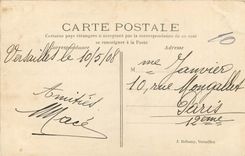 CARTE POSTALE
Certains pays étrangers n'acceptent pas la correspondance de ce côté
se renseigner à la Poste
Correspondance
Adresse
Versailles le 10/5/08
Mme Janvier
10, rue Mongallet
Paris
12ème
Amitiés
Macé
J. Bréhony, Versailles